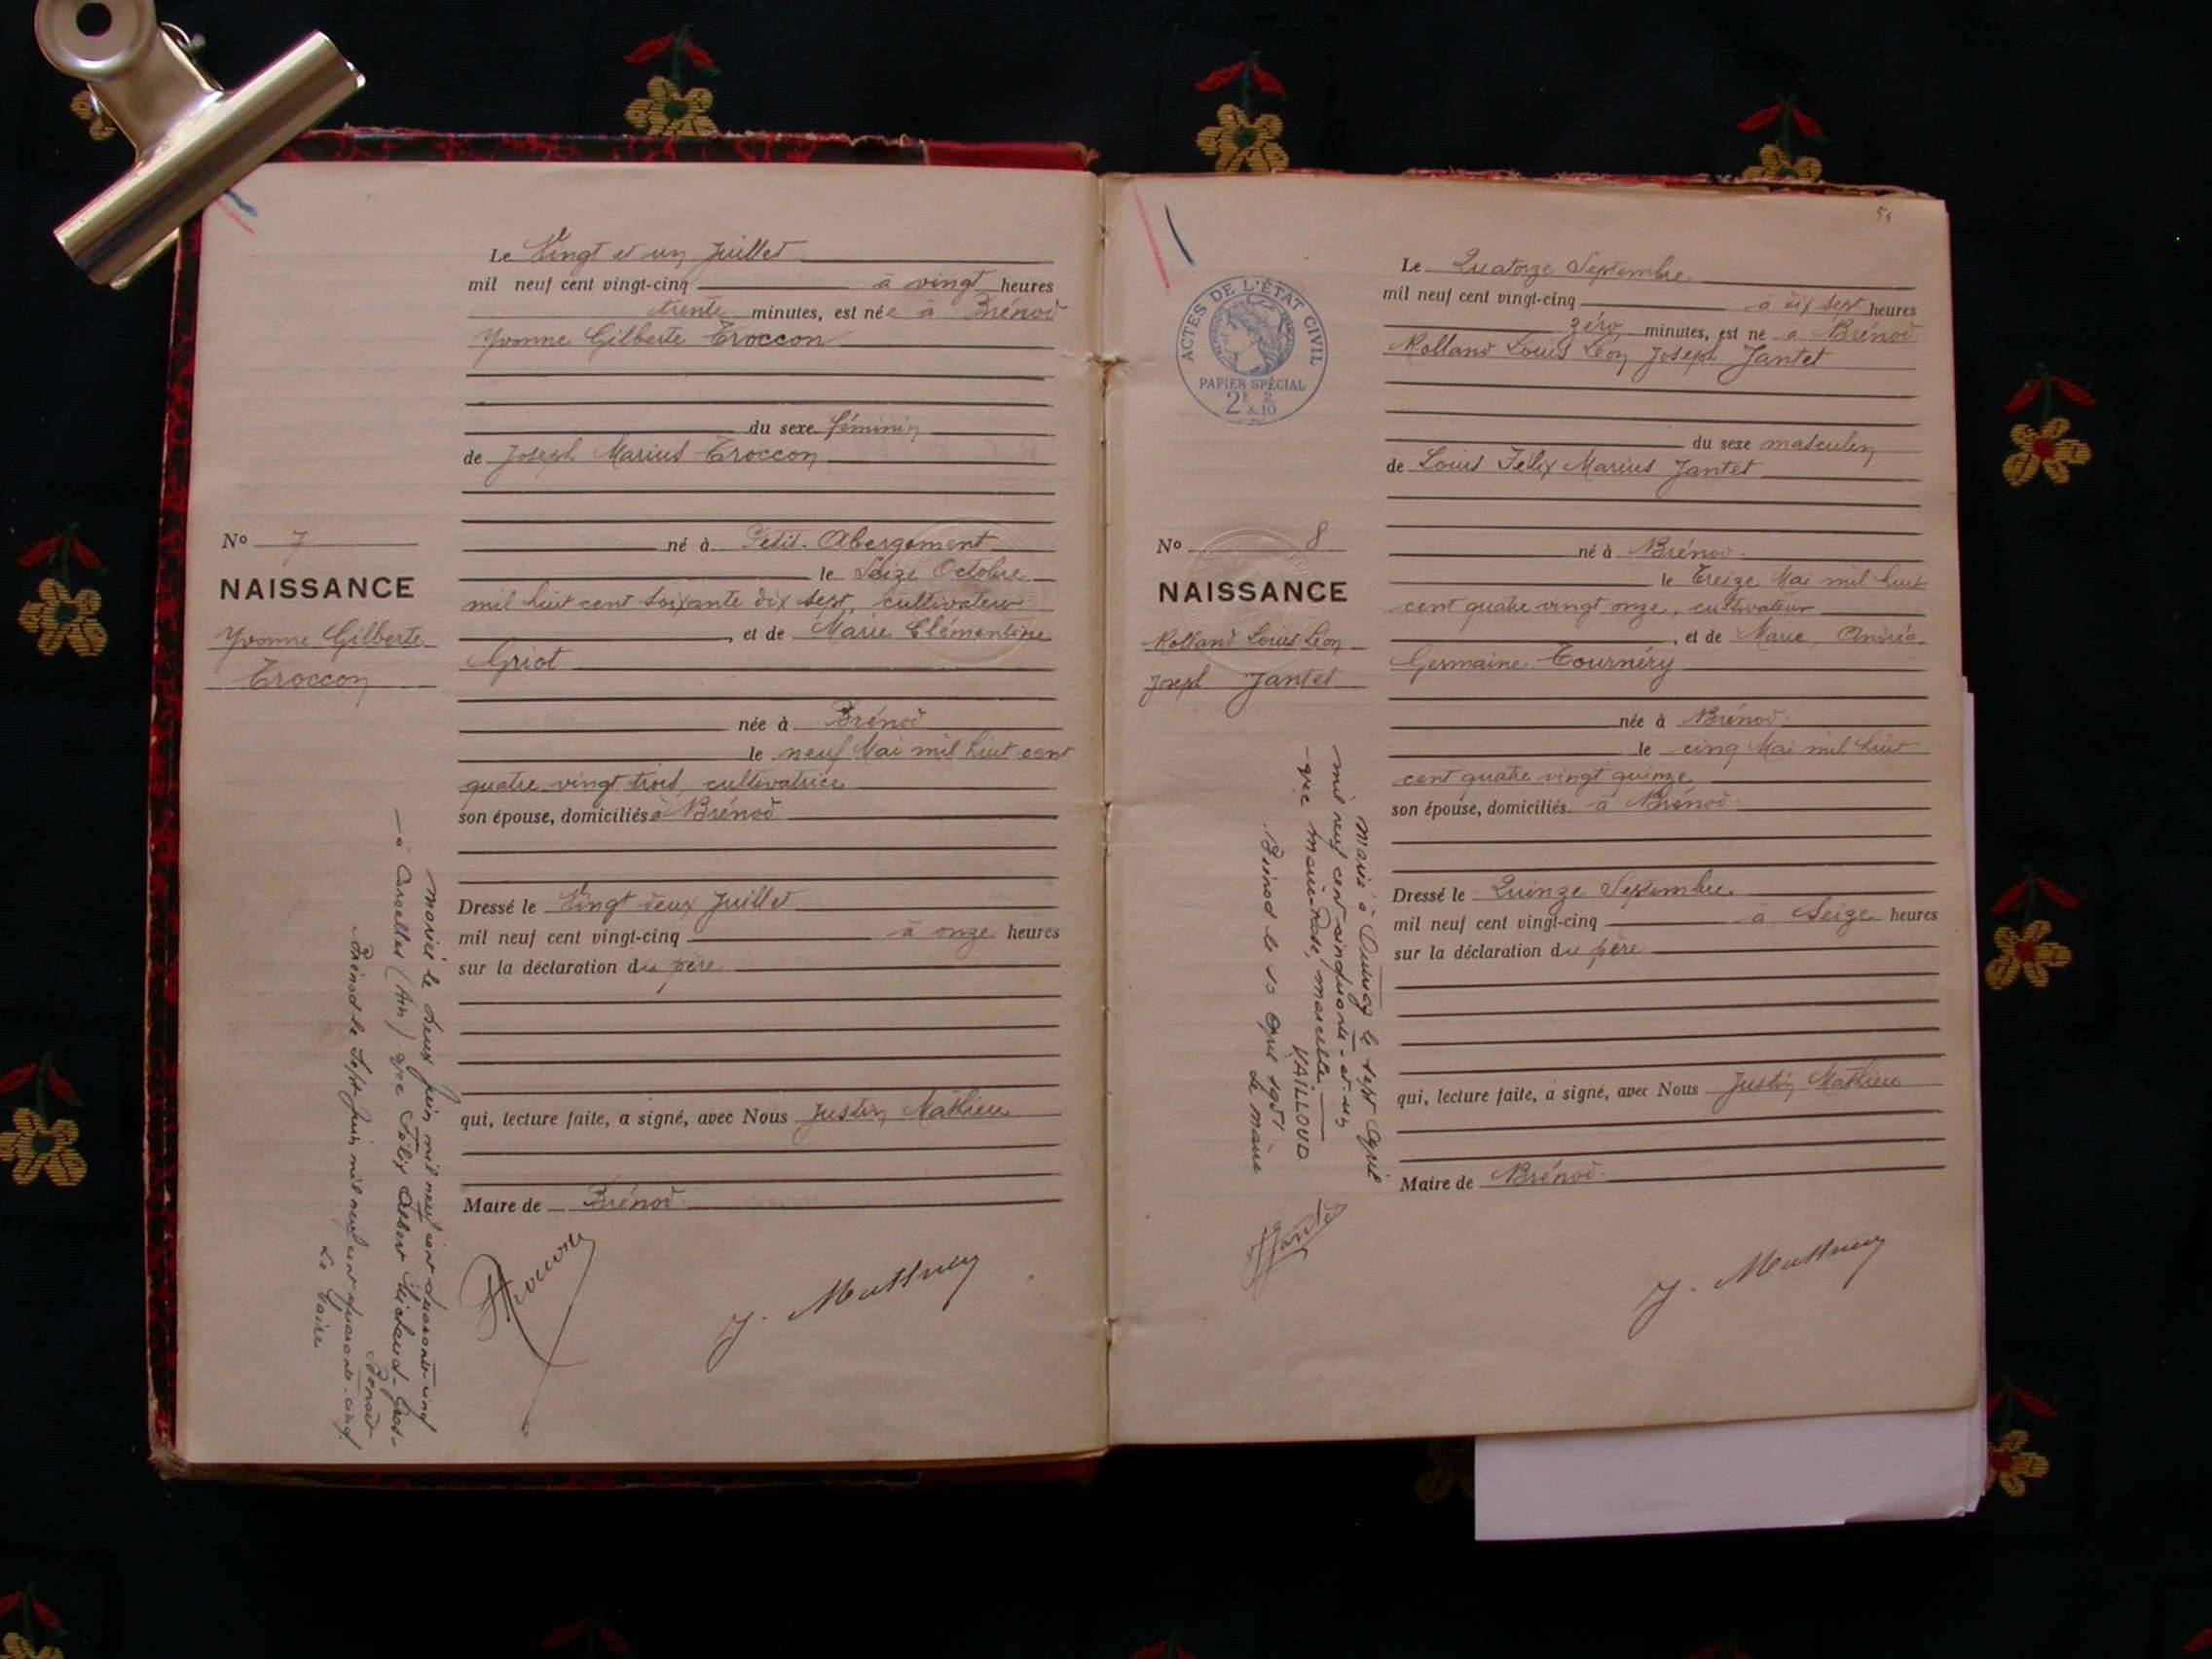 Le Vingt et un Juillet
mil neuf cent vingt-cinq à vingt heures
trente minutes, est née à Brénod
Yvonne Gilberte Troccon
du sexe féminin
de Joseph Marius Troccon
né à Petit-Abergement
le Seize Octobre
mil huit cent soixante dix sept, cultivateur
, et de Marie Clémentine
Griot
née à Brénod
le neuf Mai mil huit cent
quatre vingt trois, cultivatrice
son épouse, domiciliés à Brénod
Dressé le Vingt deux Juillet
mil neuf cent vingt-cinq à onze heures
sur la déclaration du père
qui, lecture faite, a signé, avec Nous Justin Mathieu
Maire de Brénod.
J. Mathieu
No 7
NAISSANCE
Yvonne Gilberte
Troccon
Mariée le deux juin mil neuf cent quarante-cinq
à (Ain) avec Félix Albert Michaud-Gros-
Benoit
Brénod le sept juin mil neuf cent quarante-cinq.
Le Maire
55
ACTES DE L'ÉTAT CIVIL
PAPIER SPÉCIAL
2F 2
& 10
Le Quatorze Septembre
mil neuf cent vingt-cinq à dix sept heures
zéro minutes, est né à Brénod
Rolland Louis Léon Joseph Jantet
du sexe masculin
de Louis Félix Marius Jantet
né à Brénod.
le Treize Mai mil huit
cent quatre vingt onze, cultivateur
, et de Marie, Andréa
Germaine Tournéry
née à Brénod.
le cinq Mai mil huit
cent quatre vingt quinze
son épouse, domiciliés à Brénod.
Dressé le Quinze Septembre
mil neuf cent vingt-cinq à Seize heures
sur la déclaration du père
qui, lecture faite, a signé, avec Nous Justin Mathieu
Maire de Brénod.
J. Mathieu
No 8
NAISSANCE
Rolland Louis Léon
Joseph Jantet
Marié à le sept Avril
mil neuf cent cinquante-et-un
avec Marie-Rose, Marcelle
VAILLOUD.
Brénod le 10 Avril 1951
Le Maire